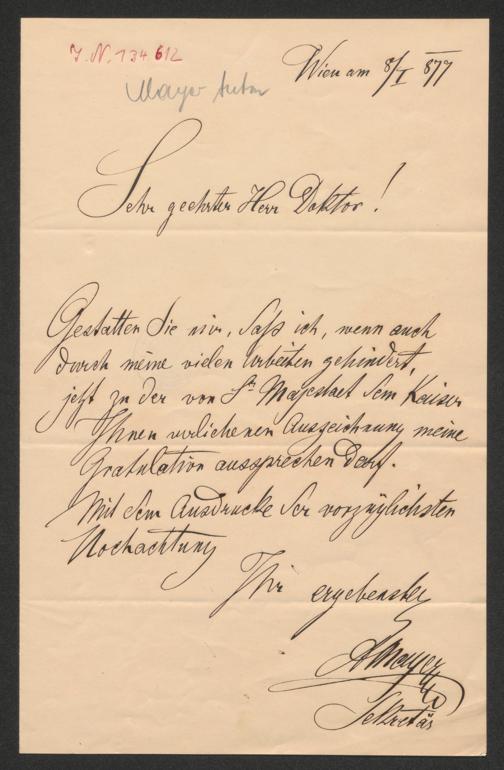 J. N. 134 612
Mayer Anton
Wien am 8/I 877
Sehr geehrter Herr Doktor!
Gestatten Sie mir, daß ich, wenn auch
durch meine vielen Arbeiten gehindert,
jetzt zu der von Sr Majestaet dem Kaiser
Ihnen verliehenen Auszeichnung meine
Gratulation aussprechen darf.
Mit dem Ausdrucke der vorzüglichsten
Hochachtung
Ihr ergebenster
AMayer
Sekretär